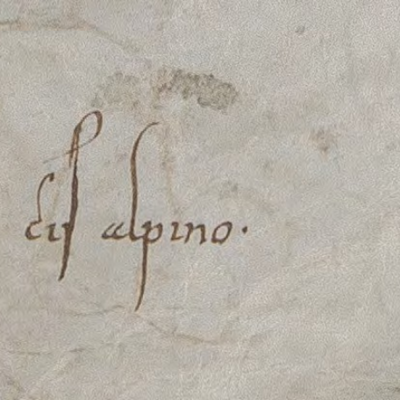 cis alpino.